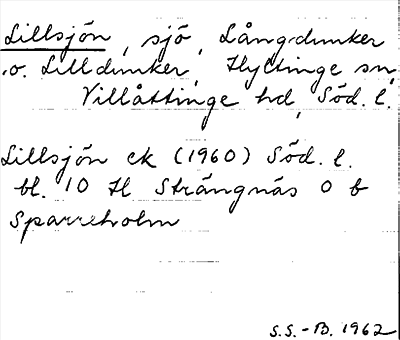 Lillsjön, sjö, Långdunker
o. Lilldunker, Hyltinge sn,
Villåttinge hd, Söd. l.
Lillsjön ek (1960) Söd. l.
bl. 10 H Strängnäs O b
Sparreholm
S.S.-B. 1962